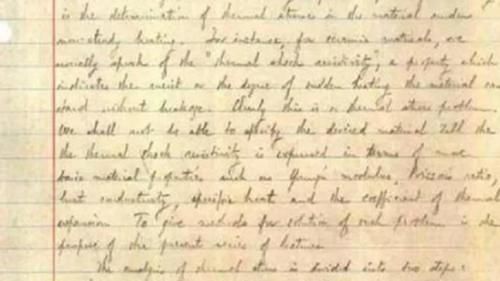 is the determination of thermal stress in the material under
non-steady heating. For instance, for ceramic materials, we
usually speak of the "thermal shock resistivity", a property which
indicates the merit or the degree of sudden heating the material can
stand without breakage. Clearly this is a thermal stress problem.
We shall not be able to specify the desired material till the
the thermal shock resistivity is expressed in terms of more
basic material properties such as Young's modulus, Poisson's ratio,
heat conductivity, specific heat and the coefficient of thermal
expansion. To give methods for solution of such problem is the
purpose of the present series of lectures.
The analysis of thermal stress is divided into two steps: